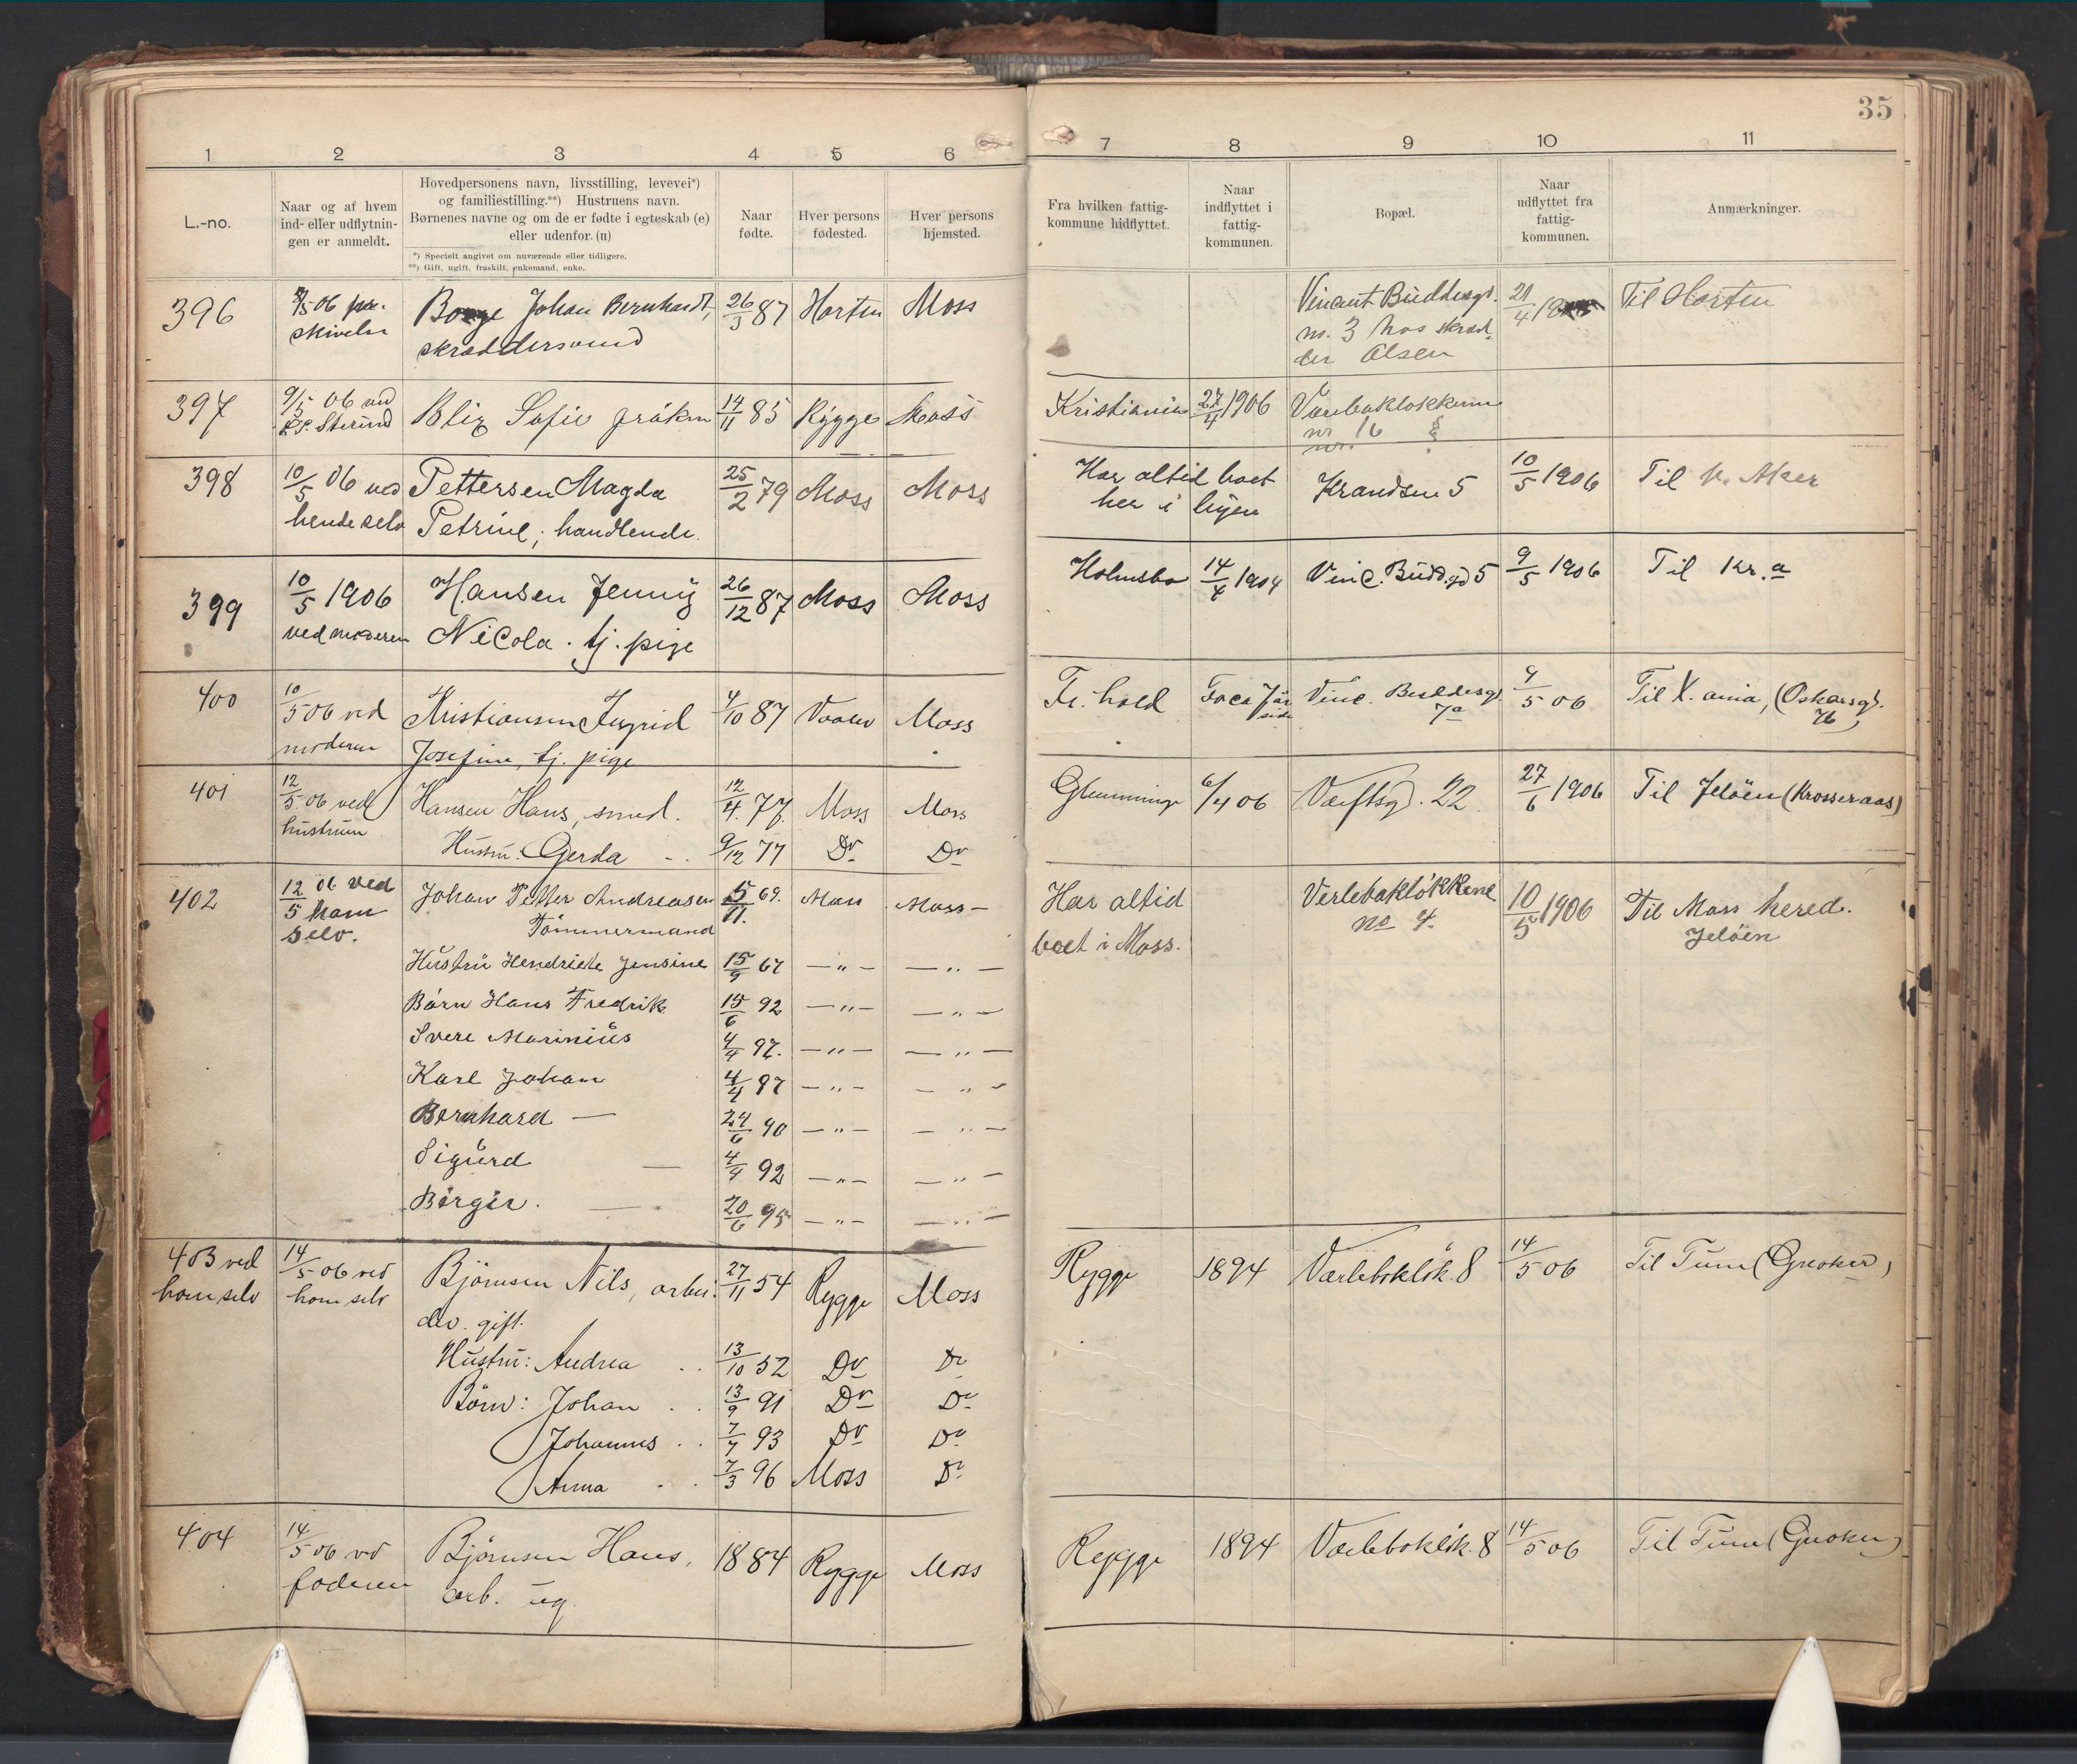 35
1 2 3 4 5 6 7 8 9 10 11
L.-no.
Naar og af hvem
ind- eller udflytnin-
gen er anmeldt.
Hovedpersonens navn, livsstilling, levevei*)
og familiestilling.**) Hustruens navn.
Børnenes navne og om de er fødte i egteskab (e)
eller udenfor. (u)
*) Specielt angivet om nuværende eller tidligere.
**) Gift, ugift, fraskilt, enkemand, enke.
Naar
fødte.
Hver persons
fødested.
Hver persons
hjemsted.
Fra hvilken fattig-
kommune hidflyttet.
Naar
indflyttet i
fattig-
kommunen.
Bopæl.
Naar
udflyttet fra
fattig-
kommunen.
Anmærkninger.
396 06 Johan Bernhardt, 26/3 87 Horten Moss
skriveln skræddersvend
Vincent Buddesgt. 21/4 Til Horten
no. 3 hos skræd-
der Olsen
397 9/5 06 ved Blix Sofie frøken 14/11 85 Rygge Moss Kristiania 27/4 1906
nr 16
398 10/5 06 ved Pettersen Magda 25/2 79 Moss Moss Har altid boet Krandsen 5 10/5 1906 Til V. Aker
hende selv Petrine, handlende. her i byen
399 10/5 1906 Hansen Jenny 26/12 87 Moss Moss Holmsbo 14/4 1904 Vinc. Budd.gd 5 9/5 1906 Til Kr.a
ved moderen Nicola. tj. pige
400 10/5 06 ved Kristiansen Ingrid 4/10 87 Vaaler Moss Fr. hald Vinc. Buddesgd. 9/5 06 Til K.ania, (Oskarsgd.
moderen Josefine, tj. pige 7a 76)
401 12/5 06 ved Hansen Hans, smed. 12/4 77. Moss Moss Glemminge 6/4 06 Værftsgd. 22 27/6 1906 Til Jeløen (Krosseraas)
hustruen Hustru: Gerda 9/12 77 Do Do
402 12/5 06 ved Johan Petter Andreasen 69. Moss Moss Har altid Verlebakløkkene 10/5 1906 Til Moss hered.
ham Tømmermand boet i Moss. no 4. Jeløen
selv.
Hustru Hendriette Jensine 15/9 67 — " — — " —
Børn Hans Fredrik 15/6 92 — " — — " —
Svere Marinius 4/4 97. — " — — " —
Karl Johan 4/4 87 — " — — " —
Bernhard — 24/6 90 — " — — " —
Sigurd — 4/4 92 — " — — " —
Birger. — 20/6 95 — " — — " —
403 ved 14/5 06 ved Bjørnsen Nils, arbei- 27/11 54 Rygge Moss Rygge 1894 Værlebakløk. 8 14/5 06 Til Tune (Greaker)
ham selv ham selv der. gift.
Hustru: Andrea 13/10 52 Do Do
Børn: Johan 13/9 91 Do Do
Johannes 7/7 93 Do Do
Anna 7/3 96 Moss Do
404 14/5 06 ved Bjørnsen Hans, 1884 Rygge Moss Rygge 1894 Værlebakløk. 8 14/5 06 Til Tune (Greaker)
faderen arb. ug.